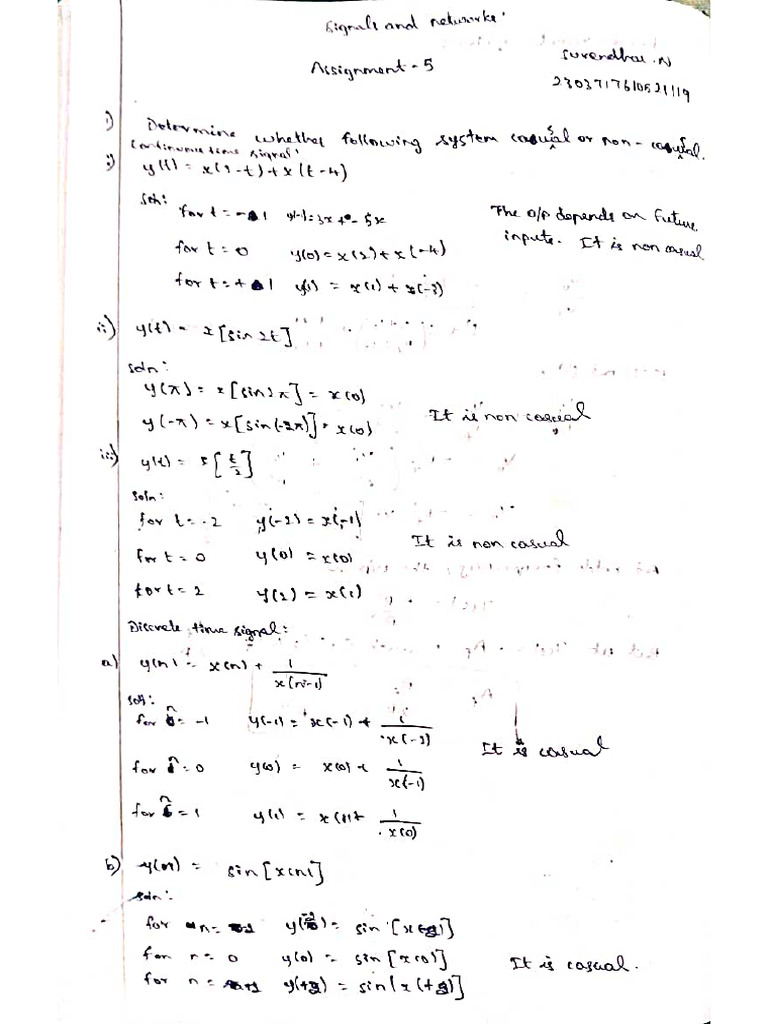 Signals and networks.
Assignment - 5
Surendhar.N
2303717610521119
1) Determine whether following system casual or non-casual.
Continuous time signal:
i) y(t) = x(2-t) + x(t-4)
Soln:
for t = -1 y(-1) = 3x + - 5x
for t = 0 y(0) = x(2) + x(-4)
for t = +1 y(1) = x(1) + x(-3)
The o/p depends on future
inputs. It is non casual
ii) y(t) = x[sin 2t]
Soln:
y(π) = x[sin 2π] = x(0)
y(-π) = x[sin(-2π)] = x(0)
It is non casual
iii) y(t) = x[t/2]
Soln:
for t = -2 y(-2) = x(-1)
for t = 0 y(0) = x(0)
for t = 2 y(2) = x(1)
It is non casual
Discrete time signal:
a) y(n) = x(n) + 1/x(n-1)
Sol:
for n = -1 y(-1) = x(-1) + 1/x(-2)
for n = 0 y(0) = x(0) + 1/x(-1)
for n = 1 y(1) = x(1) + 1/x(0)
It is casual
b) y(n) = sin[x(n)]
Soln:
for n = y( ) = sin [x( )]
for n = 0 y(0) = sin [x(0)]
for n = y( ) = sin[x( )]
It is casual.